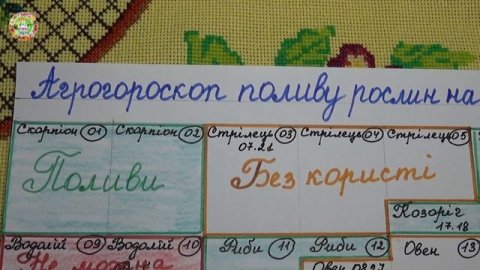 Агрогороскоп поливу рослин на
Скорпіон 01 Скорпіон 02 Стрілець 03 Стрілець 04 Стрілець 05
07.21
Поливи Без користі
Козоріг
17.18
Водолій 09 Водолій 10 Риби 11 Риби 12 Овен 13
Не можна Овен 08.27